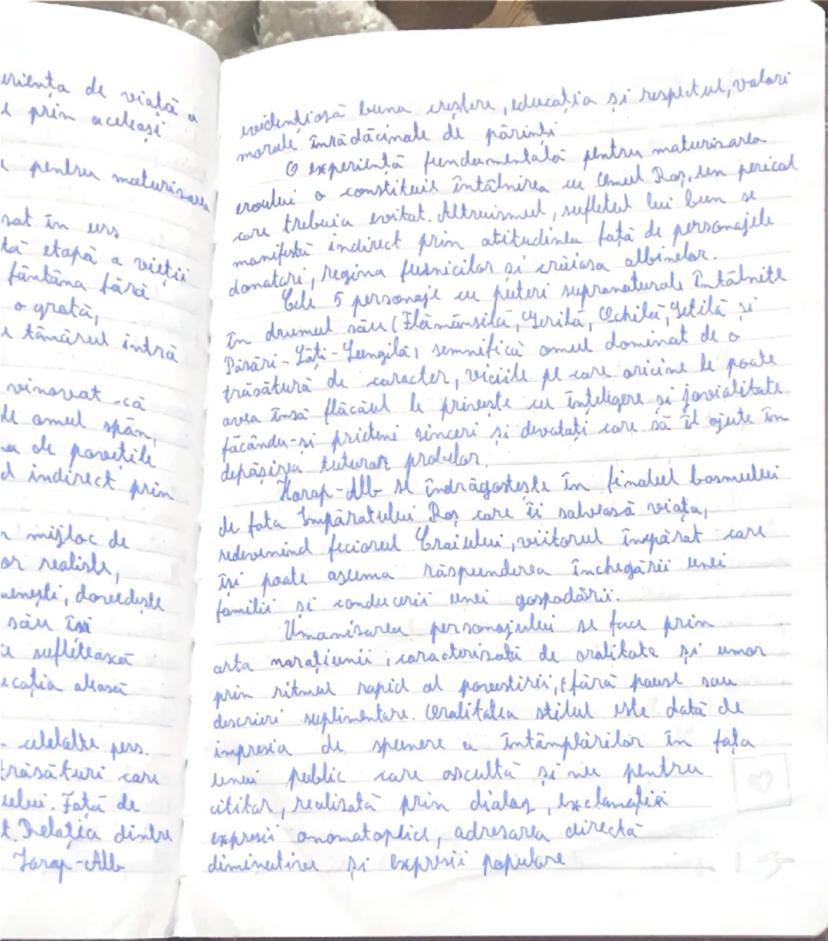 eriența de viață a
e prin aceleași
pentru maturizarea
sat în urs
tă etapă a vieții
fântâna fără
o grotă,
e tânărul intră
vinovat că
de omul spân,
de povețile
d indirect prin
mijloc de
or realiste,
uenești, dovedește
său își
sufletească
ucația aleasă
celelalte pers.
trăsături care
ului. Față de
t. Relația dintre
Harap-Alb
evidențiază buna creștere, educația și respectul, valori
morale înrădăcinate de părinți
O experiență fundamentală pentru maturizarea
eroului o constituie întâlnirea cu Omul Roș, un pericol
care trebuia evitat. Altruismul, sufletul lui bun se
manifestă indirect prin atitudinea față de personajele
donatori, regina furnicilor și crăiasa albinelor.
Cele 5 personaje cu puteri supranaturale întâlnite
în drumul său (Flămânzilă, Gerilă, Ochilă, Setilă și
Păsări-Lăți-Lungilă) semnifică omul dominat de o
trăsătură de caracter, viciile pe care oricine le poate
avea însă flăcăul le privește cu înțelegere și jovialitate
făcându-și prieteni sinceri și devotați care să îl ajute în
depășirea tuturor probelor.
Harap-Alb se îndrăgostește în finalul basmului
de fata Împăratului Roș care îi salvează viața,
redevenind feciorul Craiului, viitorul împărat care
își poate asuma răspunderea închegării unei
familii și conducerii unei gospodării.
Umanizarea personajului se face prin
arta narațiunii, caracterizată de oralitate și umor
prin ritmul rapid al povestirii, (fără pauze sau
descrieri suplimentare. Oralitatea stilul este dată de
impresia de spunere a întâmplărilor în fața
unui public care ascultă și nu pentru
cititor, realizată prin dialog, exclamații
expresii onomatopeice, adresarea directă
diminutive și expresii populare